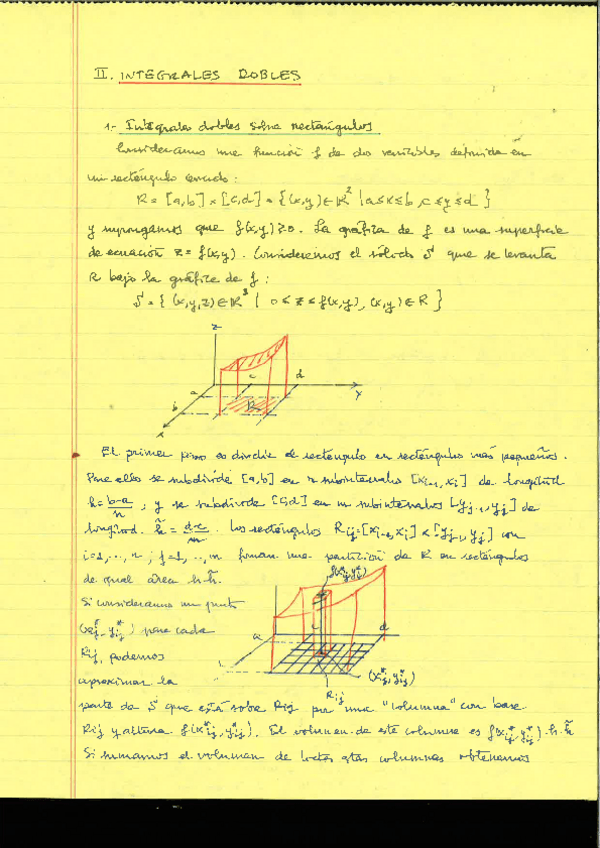 II. INTEGRALES DOBLES
1.- Integrales dobles sobre rectángulos
Consideramos una función f de dos variables definida en
un rectángulo cerrado:
R = [a,b] × [c,d] = {(x,y) ∈ R² | a ≤ x ≤ b, c ≤ y ≤ d}
y supongamos que f(x,y) ≥ 0. La gráfica de f es una superficie
de ecuación z = f(x,y). Consideremos el sólido S que se levanta
R bajo la gráfica de f:
S = { (x,y,z) ∈ R³ | 0 ≤ z ≤ f(x,y), (x,y) ∈ R }
z
a
c
d
b
R
y
x
El primer paso es dividir el rectángulo en rectángulos más pequeños.
Para ello se subdivide [a,b] en n subintervalos [xi-1, xi] de longitud
h = b-a/n ; y se subdivide [c,d] en m subintervalos [yj-1, yj] de
longitud. h̃ = d-c/m. Los rectángulos Rij = [xi-1, xi] × [yj-1, yj] con
i=1,...,n ; j=1,...,m forman una partición de R en rectángulos
de igual área h·h̃.
f(xij*, yij*)
Si consideramos un punto
(xij*, yij*) para cada
a
c
d
Rij, podemos
(xij*, yij*)
aproximar la
Rij
parte de S que está sobre Rij por una "columna" con base
Rij y altura f(xij*, yij*). El volumen de este columna es f(xij*, yij*)·h·h̃
Si sumamos el volumen de todas estas columnas obtenemos